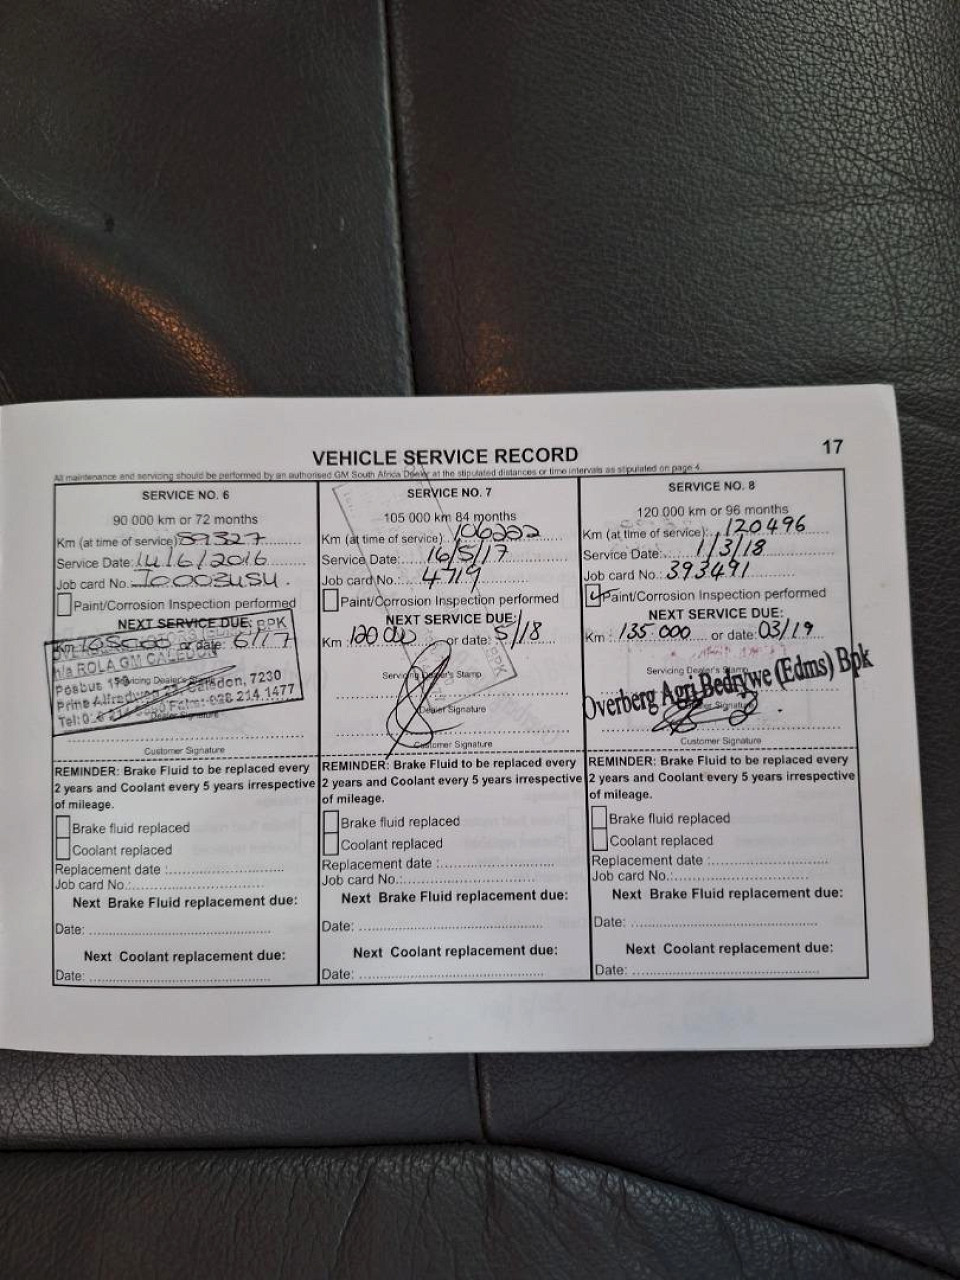 17
VEHICLE SERVICE RECORD
All maintenance and servicing should be performed by an authorised GM South Africa Dealer at the stipulated distances or time intervals as stipulated on page 4.
SERVICE NO. 6
90 000 km or 72 months
Km (at time of service) 89327
Service Date: 14/6/2016
Job card No.
Paint/Corrosion Inspection performed
NEXT SERVICE DUE: BPK
Km 105000 or date: 6/17
h/a ROLA GM CALEDON
Posbus Servicing Dealer's Caledon, 7230
Tel: 028 214 1477
Dealer Signature
Customer Signature
REMINDER: Brake Fluid to be replaced every
2 years and Coolant every 5 years irrespective
of mileage.
Brake fluid replaced
Coolant replaced
Replacement date :
Job card No.:
Next Brake Fluid replacement due:
Date:
Next Coolant replacement due:
Date:
SERVICE NO. 7
105 000 km 84 months
Km (at time of service) 106222
Service Date: 16/5/17
Job card No.: 4719
Paint/Corrosion Inspection performed
NEXT SERVICE DUE:
Km : 120 000 or date: 5/18
BPK
Servicing Dealer's Stamp
Dealer Signature
Customer Signature
REMINDER: Brake Fluid to be replaced every
2 years and Coolant every 5 years irrespective
of mileage.
Brake fluid replaced
Coolant replaced
Replacement date :
Job card No.:
Next Brake Fluid replacement due:
Date:
Next Coolant replacement due:
Date:
SERVICE NO. 8
120 000 km or 96 months
Km (at time of service): 120496
Service Date: 1/3/18
Job card No.: 393491
Paint/Corrosion Inspection performed
NEXT SERVICE DUE:
Km : 135 000 or date: 03/19
Servicing Dealer's Stamp
Overberg Agri Bedrywe (Edms) Bpk
Dealer Signature
Customer Signature
REMINDER: Brake Fluid to be replaced every
2 years and Coolant every 5 years irrespective
of mileage.
Brake fluid replaced
Coolant replaced
Replacement date :
Job card No.:
Next Brake Fluid replacement due:
Date:
Next Coolant replacement due:
Date: